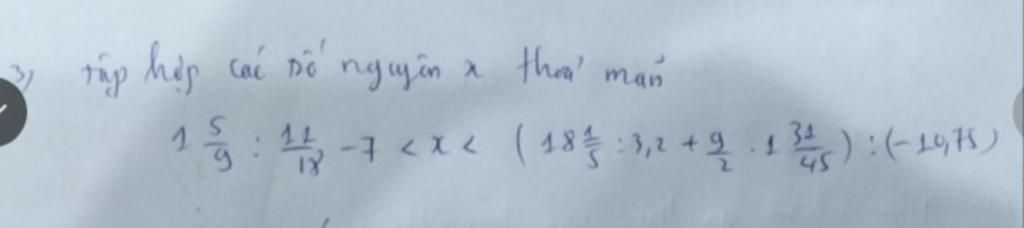 3) tập hợp các số nguyên x thoả mãn
1 5/9 : 11/18 - 7 < x < ( 18 1/5 : 3,2 + 9/2 . 1 31/45 ) : (-10,75)